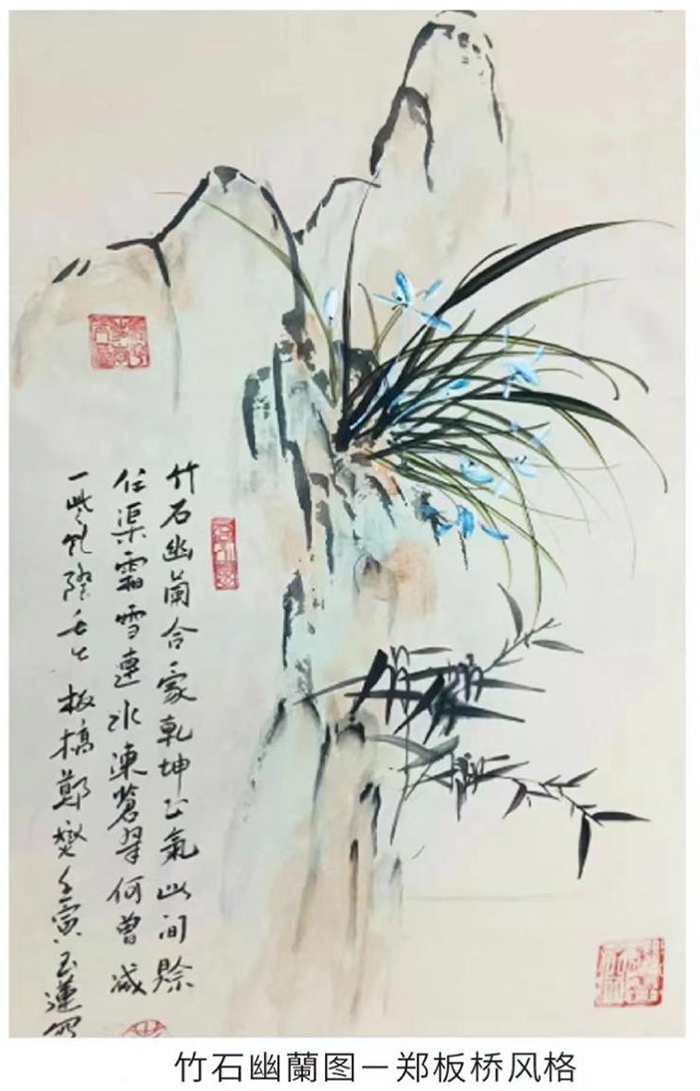 竹石幽蘭合家乾坤正氣此間賒
任渠霜雪連冰凍蒼翠何曾减
一些乾隆壬 板橋鄭燮壬寅玉蓮
竹石幽蘭图－郑板桥风格